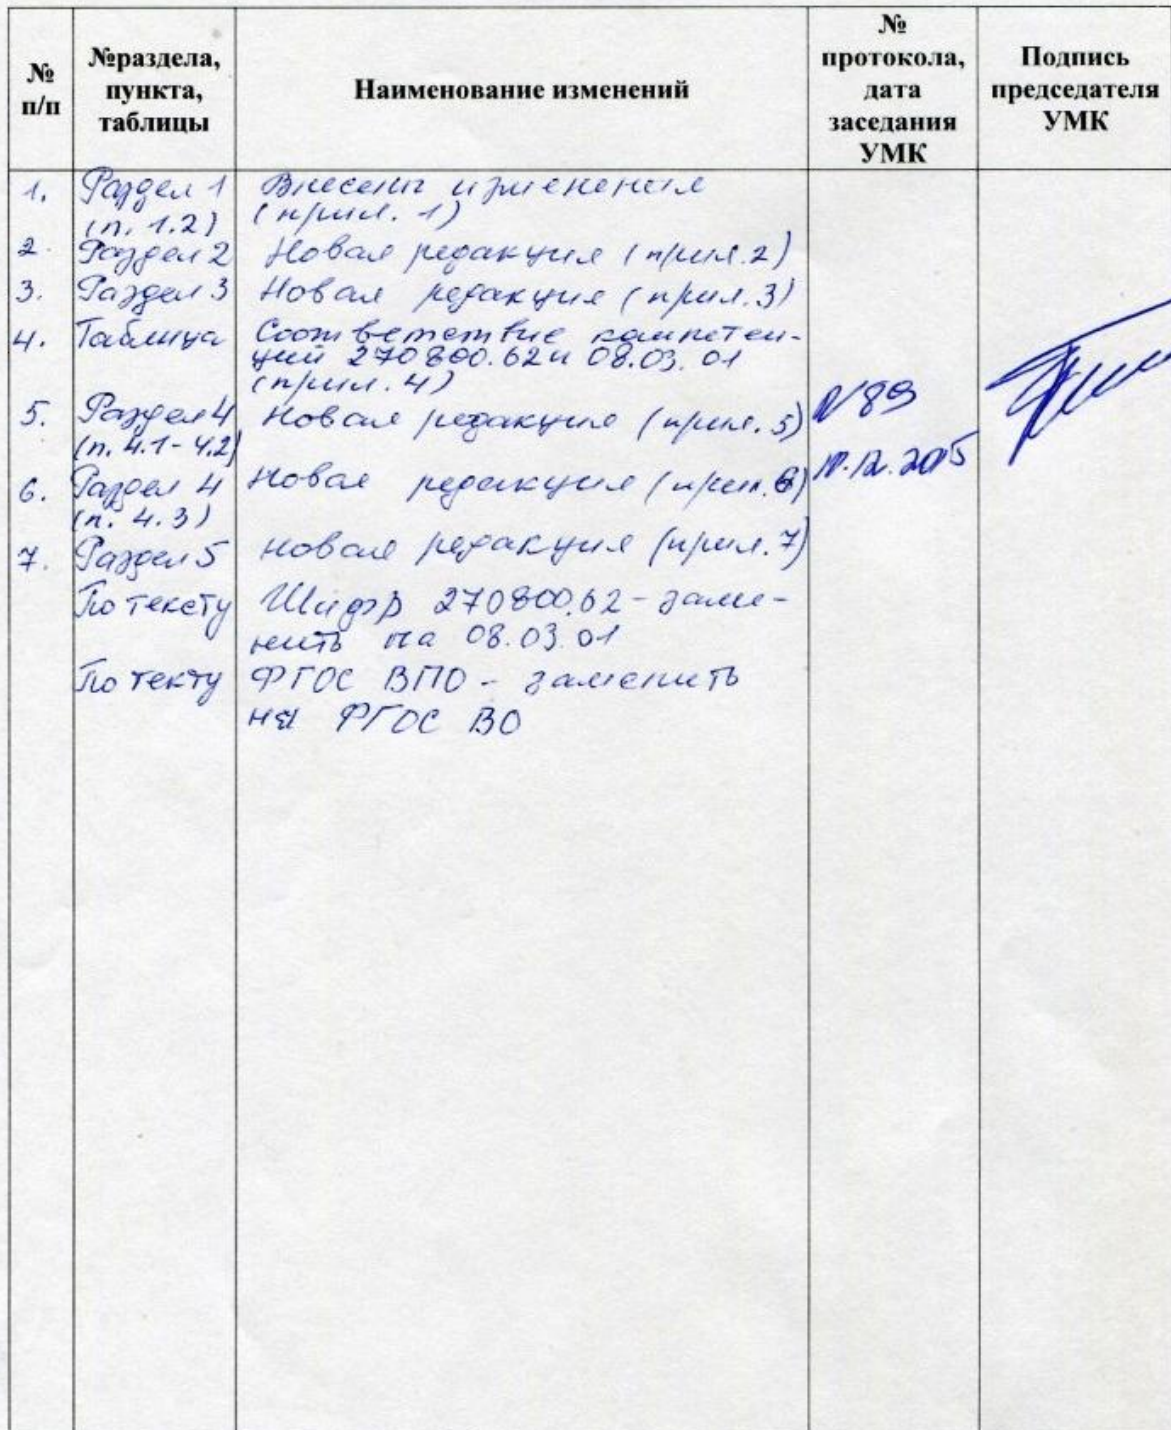 № п/п
№раздела, пункта, таблицы
Наименование изменений
№ протокола, дата заседания УМК
Подпись председателя УМК
1. Раздел 1 Внесены изменения
(п. 1.2) (прил. 1)
2. Раздел 2 Новая редакция (прил. 2)
3. Раздел 3 Новая редакция (прил. 3)
4. Таблица Соответствие компетен-
ций 270800.62 и 08.03.01
(прил. 4)
5. Раздел 4 Новая редакция (прил. 5) №89
(п. 4.1-4.2)
6. Раздел 4 Новая редакция (прил. 6) 10.12.2015
(п. 4.3)
7. Раздел 5 Новая редакция (прил. 7)
По тексту Шифр 270800.62 - заме-
нить на 08.03.01
По текту ФГОС ВПО - заменить
на ФГОС ВО